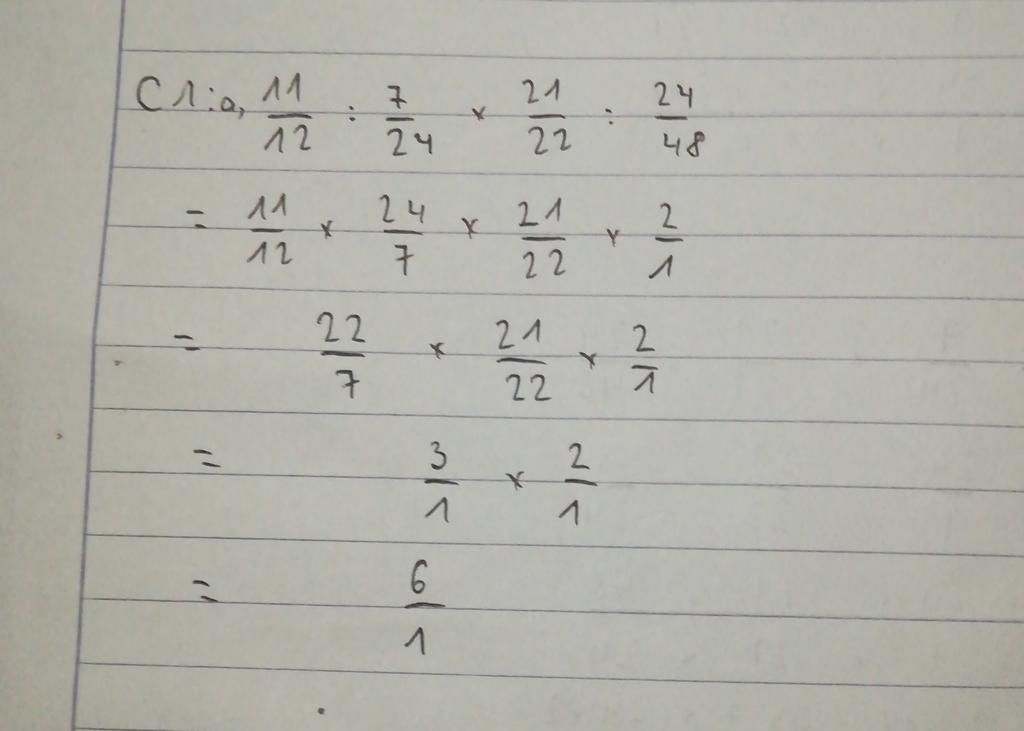 C1:a, 11/12 : 7/24 × 21/22 : 24/48
= 11/12 × 24/7 × 21/22 × 2/1
= 22/7 × 21/22 × 2/1
= 3/1 × 2/1
= 6/1